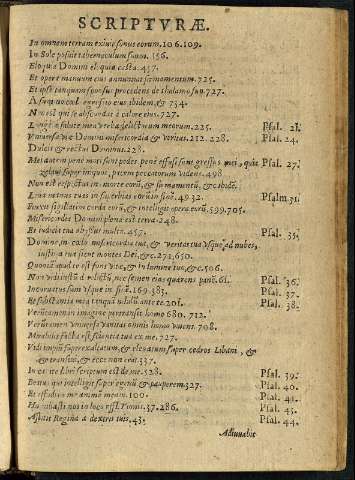 SCRIPTVRÆ.
In omnem terram exiuit sonus eorum. 106. 109.
In Sole posuit tabernaculum suum. 156.
Eloquia Domini eloquia casta. 457.
Et opera manuum eius annuntiat firmamentum. 725.
Et ipse tanquam sponsus procedens de thalamo suo. 727.
A summo coelo egressio eius ibidem, & 734.
Non est qui se abscondat a calore eius. 727.
Longè a salute mea verba delictorum meorum. 225. Psal. 21.
Vniuersæ viæ Domini misericordia & veritas. 212. 228. Psal. 24.
Dulcis & rectus Dominus. 228.
Mei autem penè moti sunt pedes, penè effusi sunt gressus mei, quia Psal. 27.
zelaui super iniquos, pacem peccatorum videns. 498
Non est respectus in morte eorū, & firmamentū, & ibidē.
Psalm. 31.
Finxit sigillatim corda eorū, & intelligit opera eorū. 599. 705.
Misericordia Domini plena est terra. 248.
Et iudicia tua abyssus multa. 457. Psal. 35.
Domine, in cœlo misericordia tua, & veritas tua vsque ad nubes,
iustitia tua sicut montes Dei, &c. 271. 650.
Quoniā apud te est fons vitæ, & in lumine tuo, &c. 506.
Non vidi iustū derelictū, nec semen eius quærens panē. 61. Psal. 36.
Incuruatus sum vsque in finē. 169. 383. Psal. 37.
Et substantia mea tanquā nihilū ante te. 201. Psal. 38.
Veruntamen in imagine pertransit homo. 680. 712.
Verumtamen vniuersa vanitas omnis homo viuens. 708.
Mirabilis facta est scientia tua ex me. 727.
Vidi impiū superexaltatum, & eleuatum super cedros Libani, &
& transiui, & ecce non erat. 337.
In capite libri scriptum est de me. 528. Psal. 39.
Beatus qui intelligit super egenū & pauperem. 327. Psal. 40.
Et effudi in me animā meam. 100. Psal. 41.
Humiliasti nos in loco afflictionis. 37. 286. Psal. 43.
Astitit Regina à dextris tuis. 43. Psal. 44.
Adiuuabit